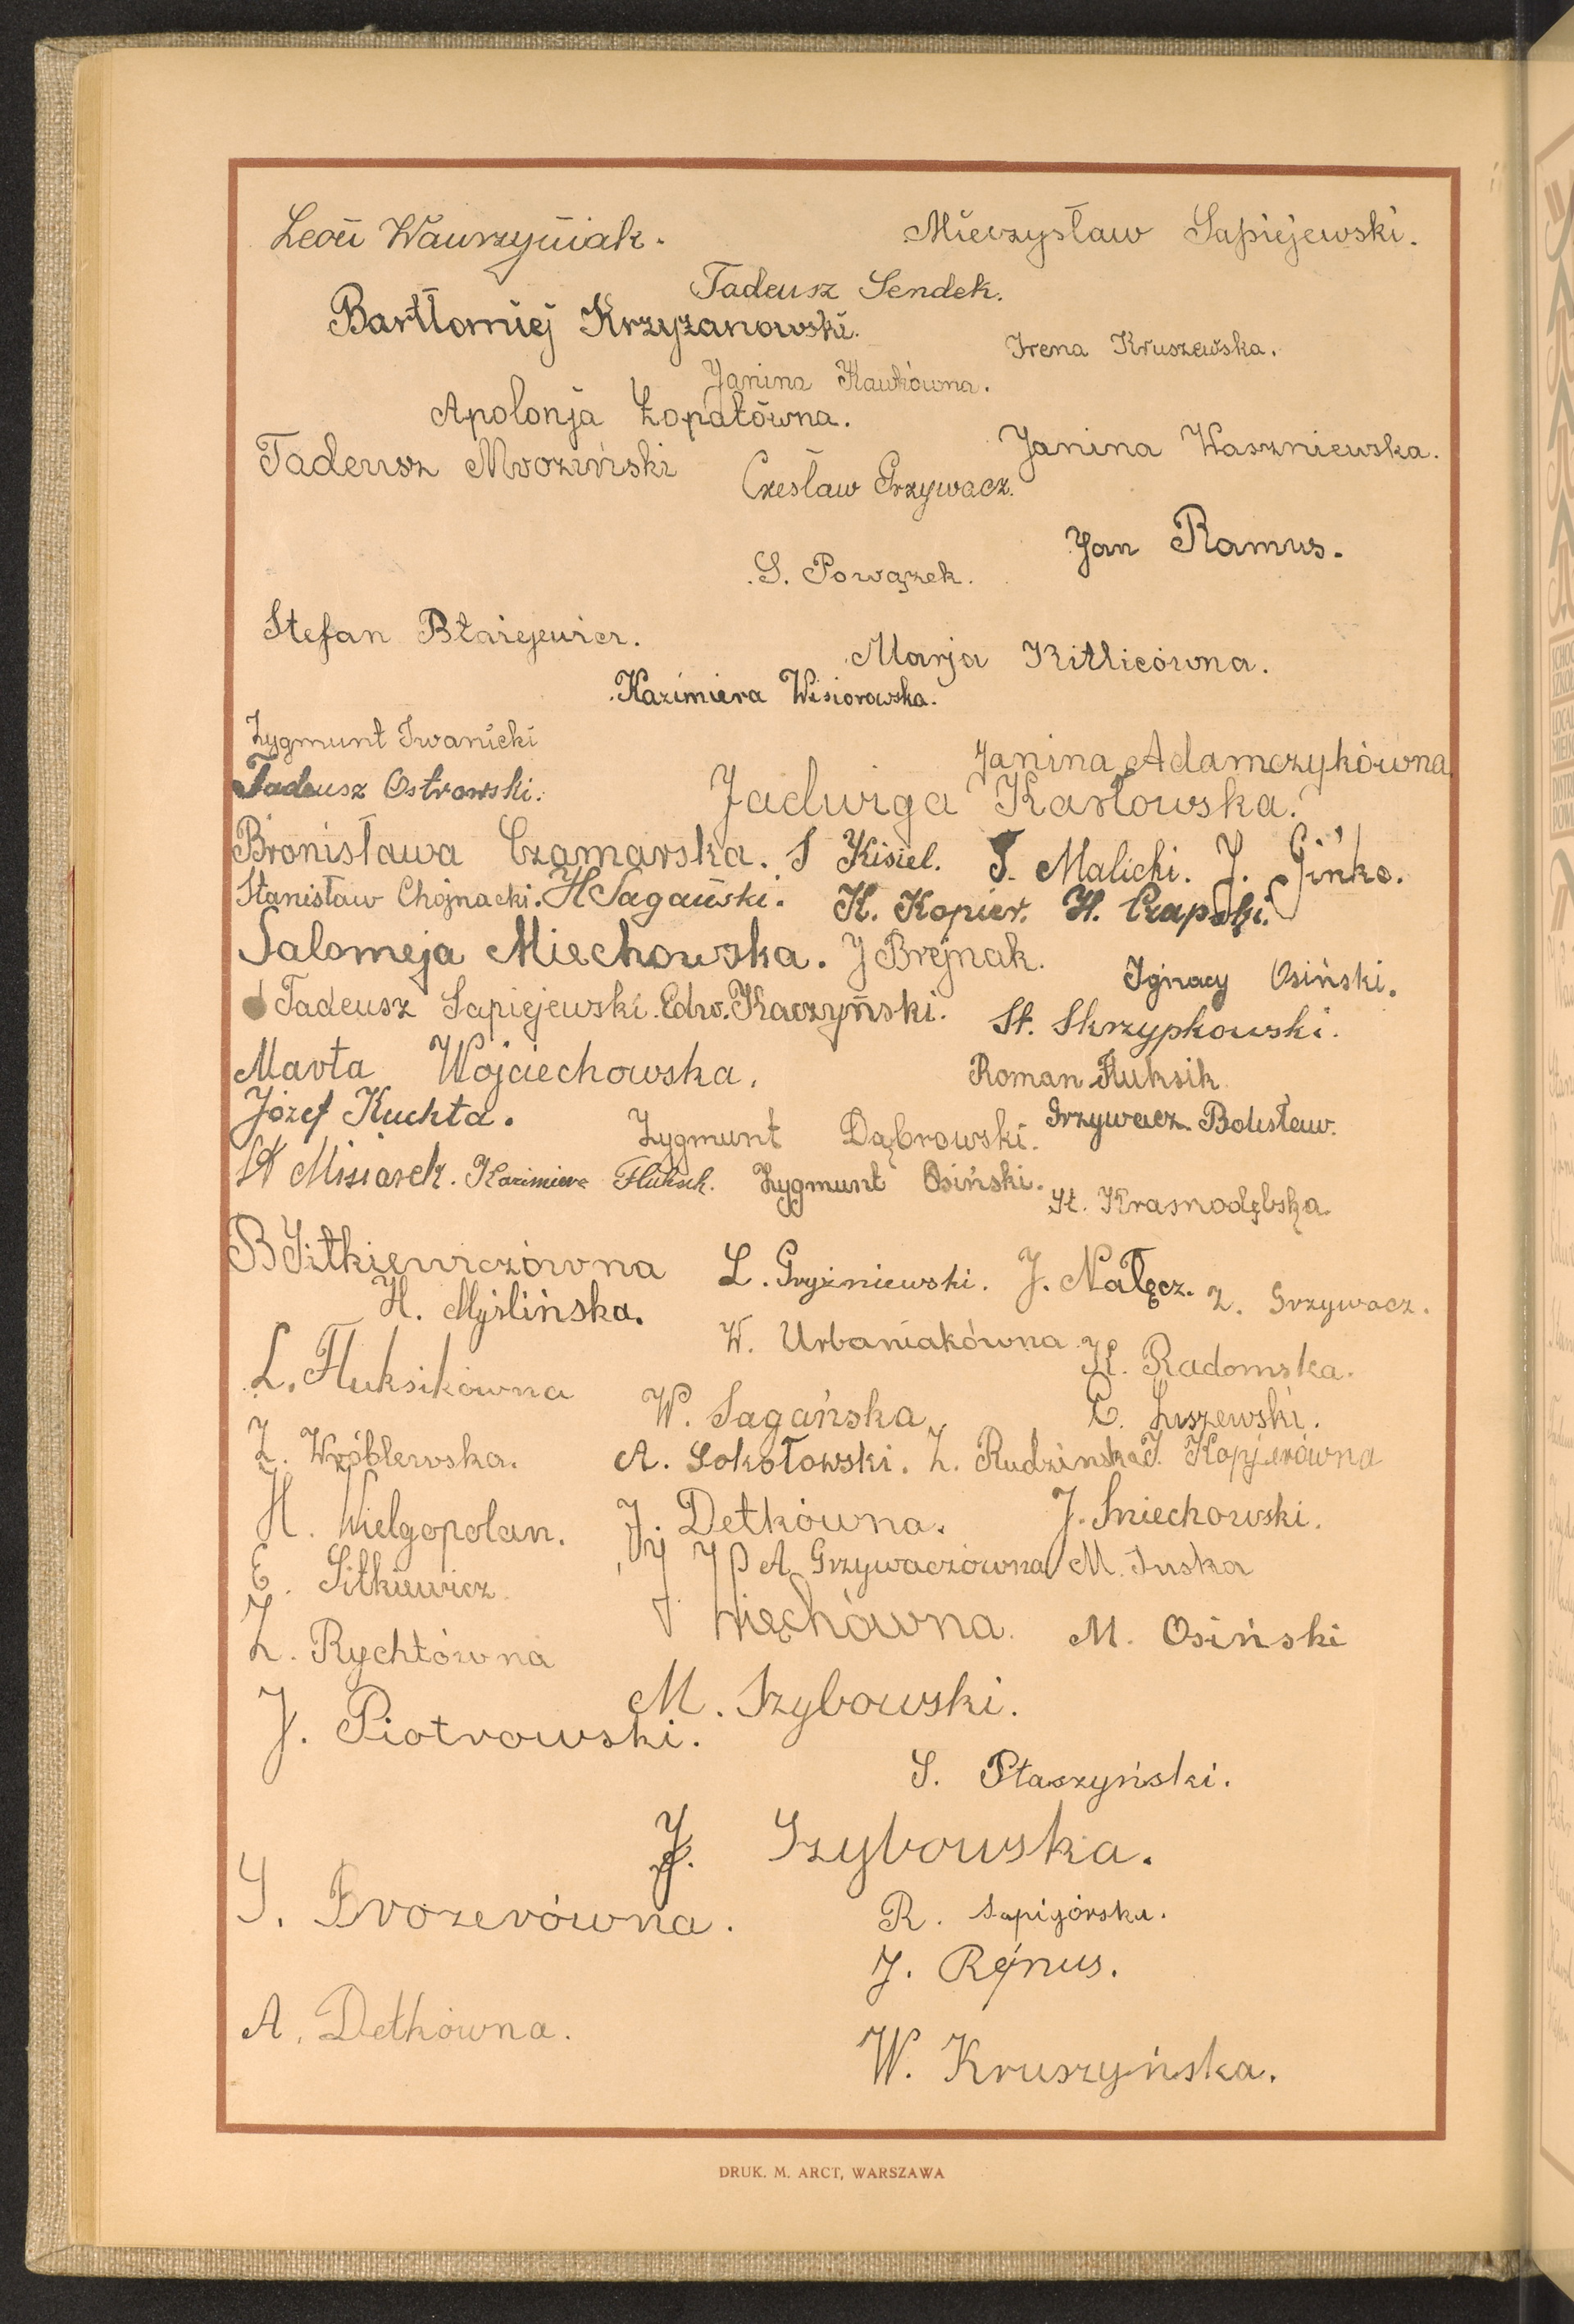 Leon Wawrzyniak. Mieczysław Sapiejewski.
Tadeusz Sendek.
Bartłomiej Krzyżanowski.
Irena Kruszewska.
Janina Kawkówna.
Apolonja Łopatówna.
Janina Waszniewska.
Tadeusz Mroziński
Czesław Grzywacz.
Jan Ramus.
S. Powązek.
Stefan Błażejewicz.
Marja Kitlicówna.
Kazimiera Wisiorowska.
Zygmunt Iwanicki
Janina Adamczykówna
Tadeusz Ostrowski.
Jadwiga Karłowska.
Bronisława Czamarska. S Kisiel. T. Malicki. J. Gińko.
Stanisław Chojnacki. H Sagański. K. Kopier. H. Czapski.
Salomeja Miechowska. J Brejnak.
Ignacy Osiński.
Tadeusz Sapiejewski. Edw. Kaczyński.
St. Skrzypkowski.
Marta Wojciechowska.
Roman Fluksik
Józef Kuchta.
Zygmunt Dąbrowski. Grzywacz Bolesław.
St Misiarek. Kazimiera Fluksik. Zygmunt Osiński.
St. Krasnodębska.
B Sitkiewiczówna L. Gryżniewski. J. Nałęcz. Z. Grzywacz.
H. Myślińska.
W. Urbaniakówna
K. Radomska.
L. Fluksikówna
W. Sagańska. C. Luszewski.
Z. Wróblewska. A. Sokołowski. Z. Rudzińska J. Kopjerówna
H. Wielgopolan. J. Detkówna. J. Sniechowski.
A Grzywaczówna M. Juska
E. Sitkiewicz
J. Niechówna. M. Osiński
Z. Rychtówna
M. Szybowski.
J. Piotrowski.
S. Ptaszyński.
J. Szybowska.
S. Brozerówna. R. Sapijórska.
J. Rejnus.
A. Detkówna.
W. Kruszyńska.
DRUK. M. ARCT, WARSZAWA